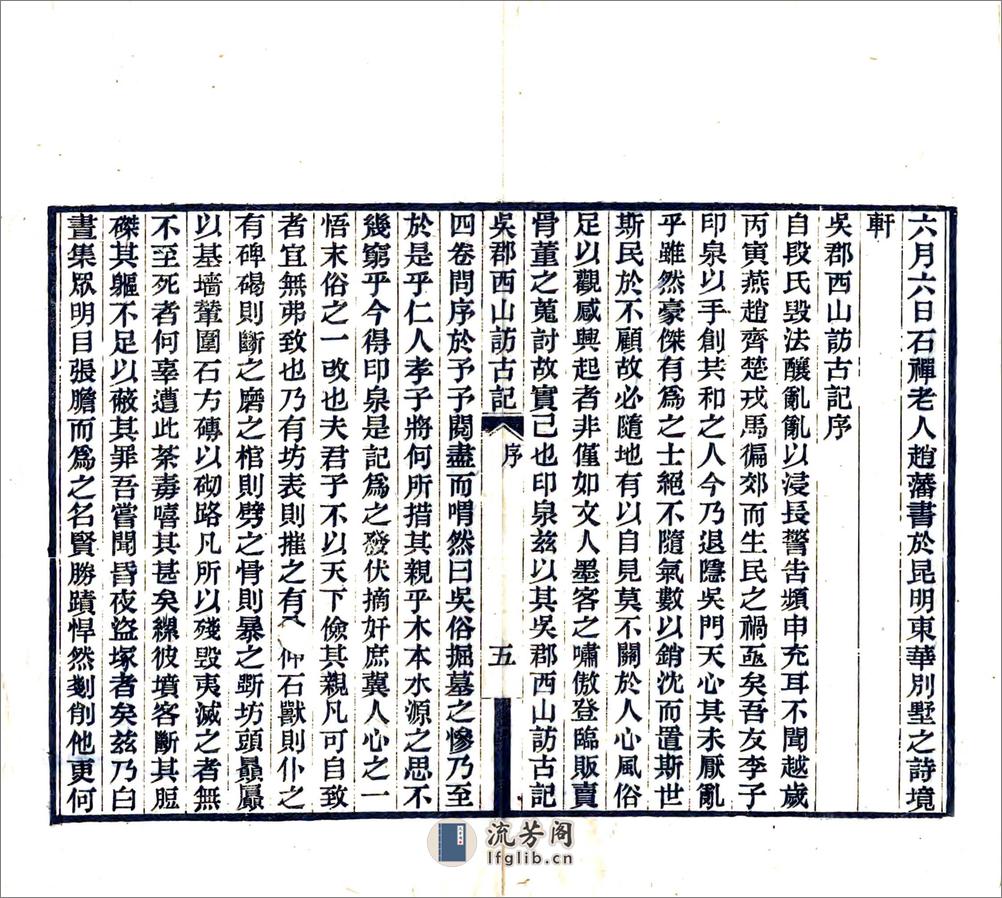 六月六日石禪老人趙藩書於昆明東華別墅之詩境
軒
吳郡西山訪古記序
自段氏毀法釀亂亂以浸長警告頻申充耳不聞越歲
丙寅燕趙齊楚戎馬徧郊而生民之禍亟矣吾友李子
印泉以手創共和之人今乃退隱吳門天心其未厭亂
乎雖然豪傑有爲之士絕不隨氣數以銷沈而置斯世
斯民於不顧故必隨地有以自見莫不關於人心風俗
足以觀感興起者非僅如文人墨客之嘯傲登臨販賣
骨董之蒐討故實已也印泉玆以其吳郡西山訪古記
吳郡西山訪古記
序
五
四卷問序於予予閱盡而喟然曰吳俗掘墓之慘乃至
於是乎仁人孝子將何所措其親乎木本水源之思不
幾窮乎今得印泉是記爲之發伏摘奸庶冀人心之一
悟末俗之一改也夫君子不以天下儉其親凡可自致
者宜無弗致也乃有坊表則摧之有仲石獸則仆之
有碑碣則斷之磨之棺則劈之骨則暴之斲坊頭贔屭
以基墻輦圍石方磚以砌路凡所以殘毀夷滅之者無
不至死者何辜遭此荼毒嘻其甚矣纝彼墳客斷其脰
磔其軀不足以蔽其罪吾嘗聞昏夜盜塚者矣玆乃白
晝集眾明目張膽而爲之名賢勝蹟悍然剗削他更何
流芳阁
lfglib.cn